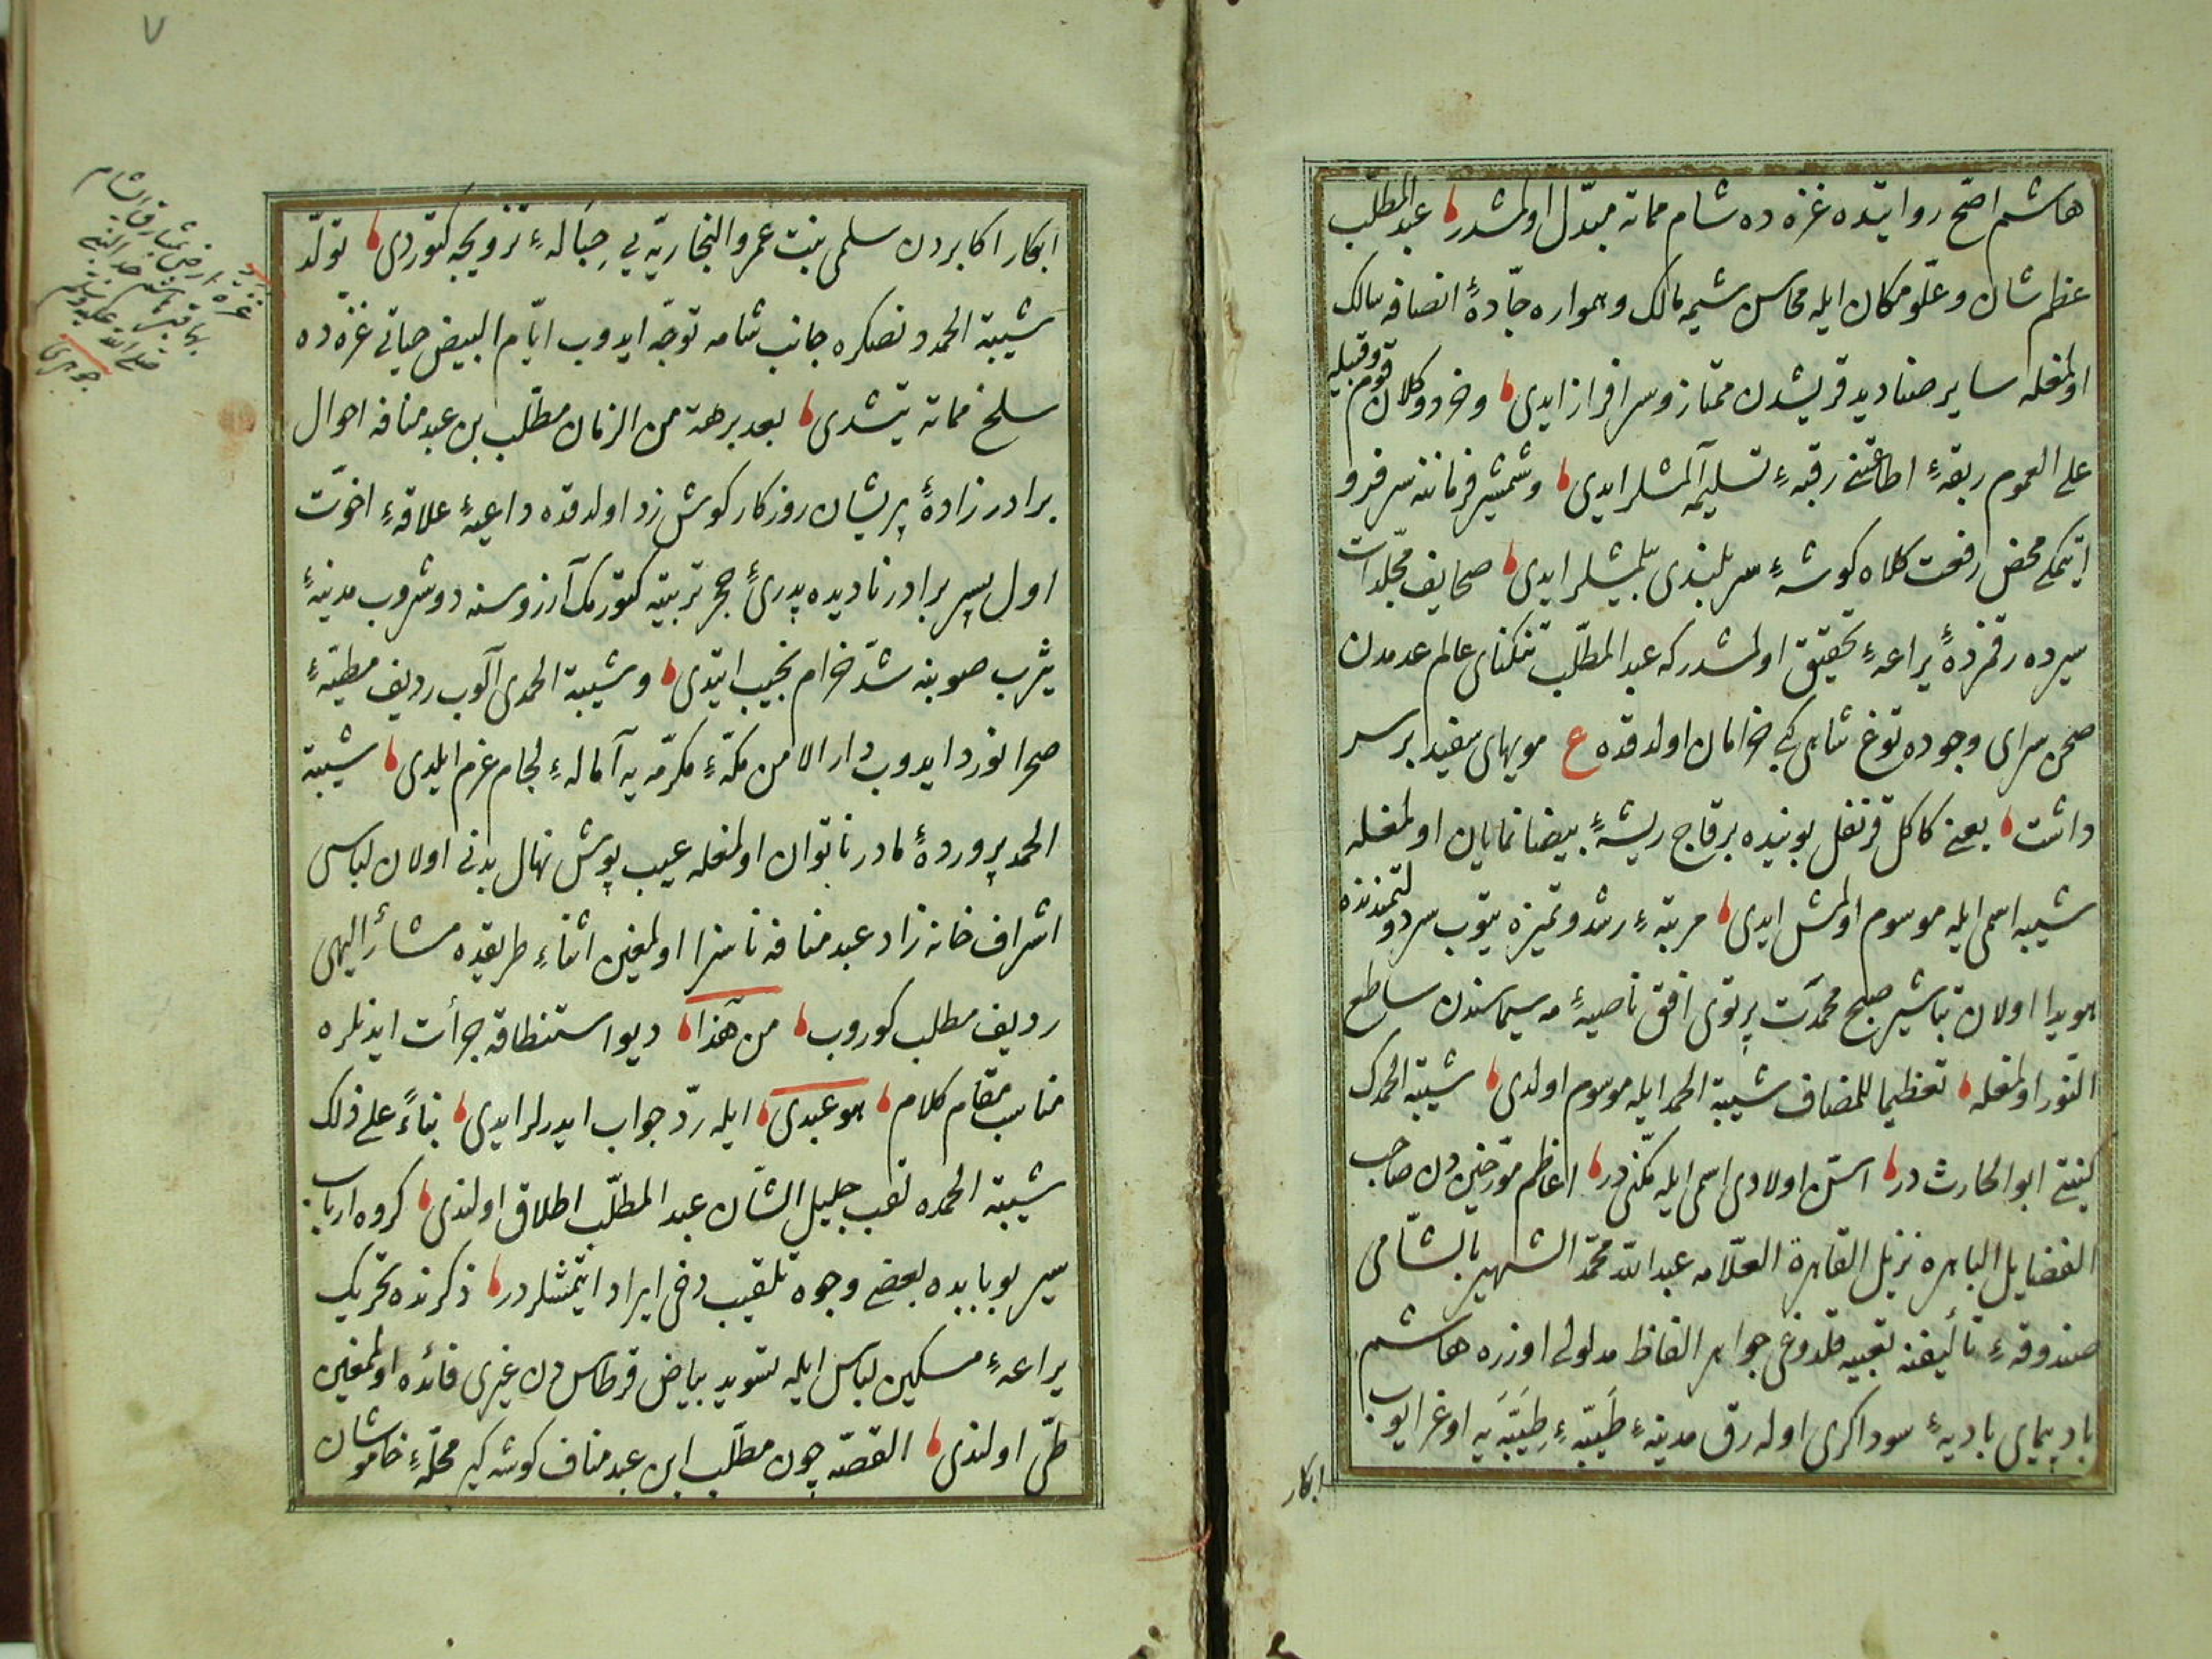 هاشم اصح روایتده غزه ده شام مماته مبدّل اولمشدر عبد المطلب
عظم شان و علوّ مكان ایله محاسن شیمه مالك و همواره جادّهٔ انصافه سالك
اولمغله سایر صنادید قریشدن ممتاز و سرافراز ایدی و خرد و كلان قوم و قبیله
علی العموم ربقهٔ اطاعتنی رقبهٔ تسلیمه آلمشلر ایدی و شمشیر فرماننه سر فرو
ایتمكی محض رفعت كلاه كوشهٔ سر بلندی بیلمشلر ایدی صحایف مجلدات
سیرده رقمزدهٔ یراعهٔ تحقیق اولمشدركه عبد المطلب تنكنای عالم عدمدن
صحن سرای وجوده توغ شاهی كبی خرامان اولدقده ع مویهای سفید بر سر
داشت یعنی كاكل قرنفل بوینده برقاج ریشهٔ بیضا نمایان اولمغله
شیبه اسمی ایله موسوم اولمش ایدی مرتبهٔ رشد و تمیزه یتوب سر دولتمندنده
هویدا اولان تباشیر صبح محمدت پرتوی افق ناصیهٔ مه سیماسندن ساطع
النور اولمغله تعظیما للمضاف شیبة الحمد ایله موسوم اولدی شیبة الحمدك
كنیتی ابو الحارث در اسنّ اولادی اسمی ایله مكنّی در اعاظم مؤرخین دن صاحب
الفضایل الباهره نزیل القاهرة العلّامه عبد الله محمّد الشهیر بالشّامی
صندوقهٔ تألیفنه تعبیه قلدوغی جواهر الفاظ مدلولی اوزره هاشم
باد پیمای بادیهٔ سوداكری اوله رق مدینهٔ طیّبهٔ طیّبه یه اوغرایوب
ابكار
٧
ابكار اكابردن سلمی بنت عمرو النجاریّه یی حبالهٔ تزویجه كتوردی تولّد
شیبة الحمد دنصكره جانب شامه توجّه ایدوب ایّام البیض حیاتی غزّه ده
سلخ مماته یتشدی بعد برهة من الزمان مطلب بن عبد منافه احوال
برادر زادهٔ پریشان روزكار كوش زد اولدقده داعیهٔ علاقهٔ اخوّت
اول پسر برادر نادیده پدری حجر تربیته كتورمك آرزوسنه دوشروب مدینهٔ
یثرب صوبنه شدّ خرام نجیب ایتدی و شیبة الحمدی آلوب ردیف مطیّهٔ
صحرا نورد ایدوب دار الامن مكّهٔ مكرّمه یه امالهٔ لجام عزم ایلدی شیبة
الحمد پروردهٔ مادر ناتوان اولمغله عیب پوش نهال بدنی اولان لباسی
اشراف خانه زاد عبد منافه ناسزا اولمغین اثناء طریقده مشار الیهی
ردیف مطلب كوروب من هذا دیو استنطاقه جرأت ایدنلره
مناسب مقام كلام هو عبدی ایله ردّ جواب ایدرلر ایدی بناءً علی ذلك
شیبة الحمده لقب جلیل الشّان عبد المطلّب اطلاق اولندی كروه ارباب
سیر بو بابده بعض وجوه تلقیب دخی ایراد ایتمشلردر ذكرنده تحریك
یراعهٔ مسكین لباس ایله تسوید بیاض قرطاس دن غیری فائده اولمغین
طیّ اولندی القصّه چون مطلب ابن عبد مناف كوشه كیر محلّهٔ خاموشان
غزه ارض بمشارق الشام
بها قبر هاشم جد النبی
صلی الله علیه وسلم
جوهری